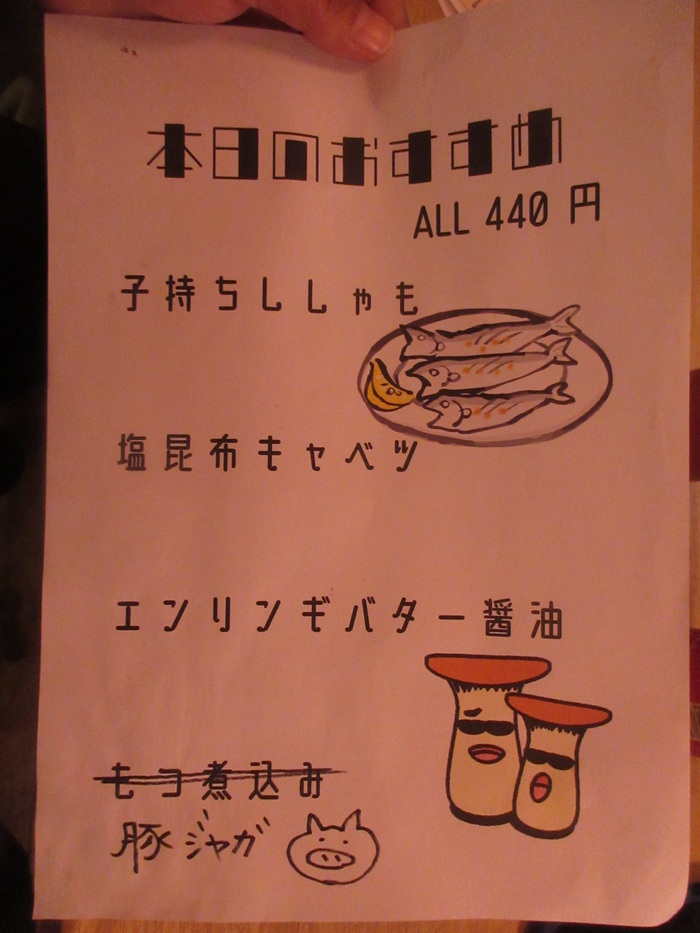 本日のおすすめ
ALL 440 円
子持ちししゃも
塩昆布キャベツ
エンリンギバター醤油
もつ煮込み
豚ジャガ